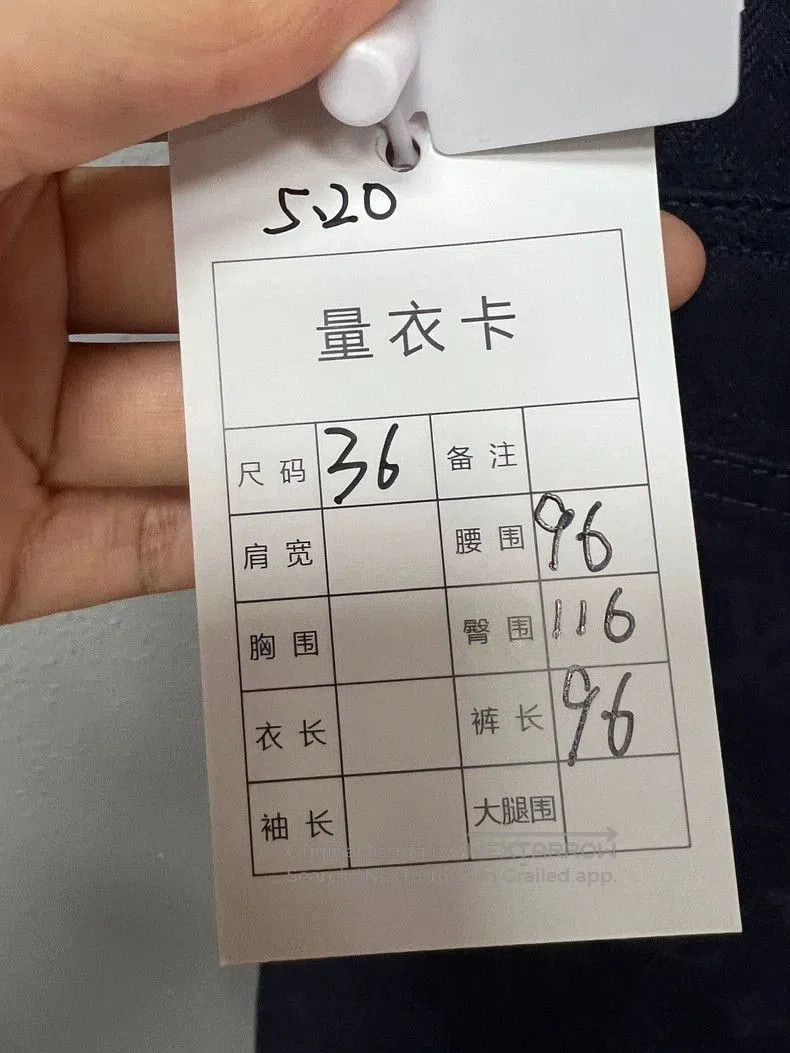 5.20
量衣卡
尺码 36 备注
肩宽 腰围 96
胸围 臀围 116
衣长 裤长 96
袖长 大腿围
Original listing by NEXTARROW
Search NextArrow in Grailed app.